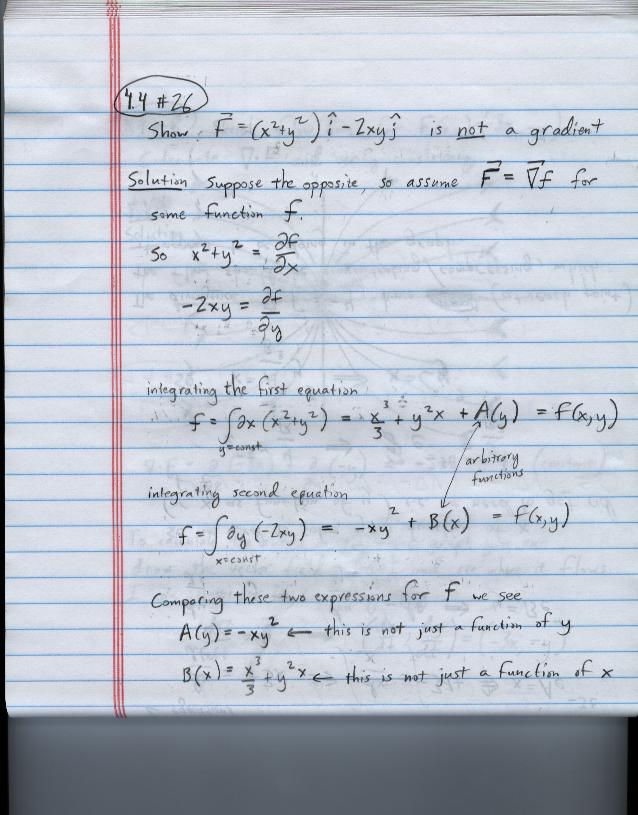 4.4 #26
Show: F⃗ = (x²+y²) î - 2xy ĵ is not a gradient
Solution Suppose the opposite, so assume F⃗ = ∇⃗f for
some function f.
So x²+y² = ∂f/∂x
-2xy = ∂f/∂y
integrating the first equation
f = ∫ ∂x (x²+y²) = x³/3 + y²x + A(y) = f(x,y)
y=const
arbitrary
functions
integrating second equation
f = ∫ ∂y (-2xy) = -xy² + B(x) = f(x,y)
x=const
Comparing these two expressions for f we see
A(y) = -xy² ← this is not just a function of y
B(x) = x³/3 + y²x ← this is not just a function of x